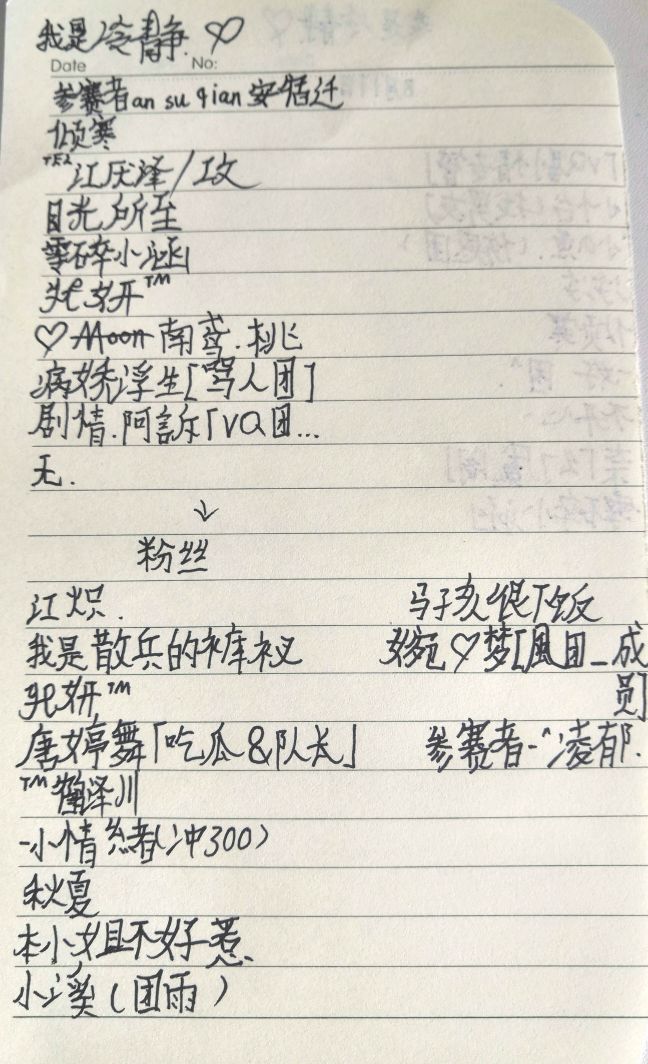 我是冷静.♡
Date No:
参赛者an su qian安恬迁
倾寒
™江厌泽/攻
目光所至
零碎小涵
张妍™
♡Moon南鸢.桃
病娇浮生[骂人团]
剧情.阿訴「VQ团...
无.
↓
粉丝
江炽. 马孩很下饭
我是散兵的裤衩 婉♡梦[風团_成员]
张妍™
唐婷舞「吃瓜&队长」 参赛者-^凌郁.
™鹤泽川
-小情绪(冲300)
秋夏
本小姐不好惹
小溪(团雨)